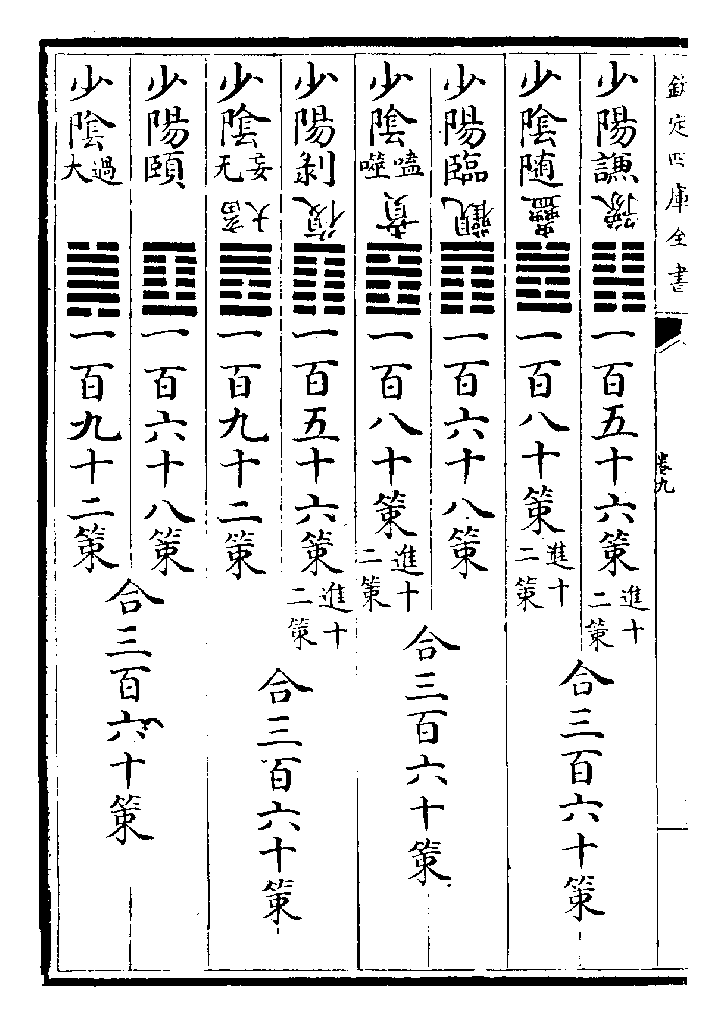 欽定四庫全書
卷九
少陽謙豫一百五十六策進十二策
少陰隨蠱一百八十策進十二策
合三百六十策
少陽臨觀一百六十八策
少陰噬嗑賁一百八十策進十二策
合三百六十策
少陽剝復一百五十六策進十二策
少陰无妄大畜一百九十二策
合三百六十策
少陽頤一百六十八策
少陰大過一百九十二策
合三百六十策